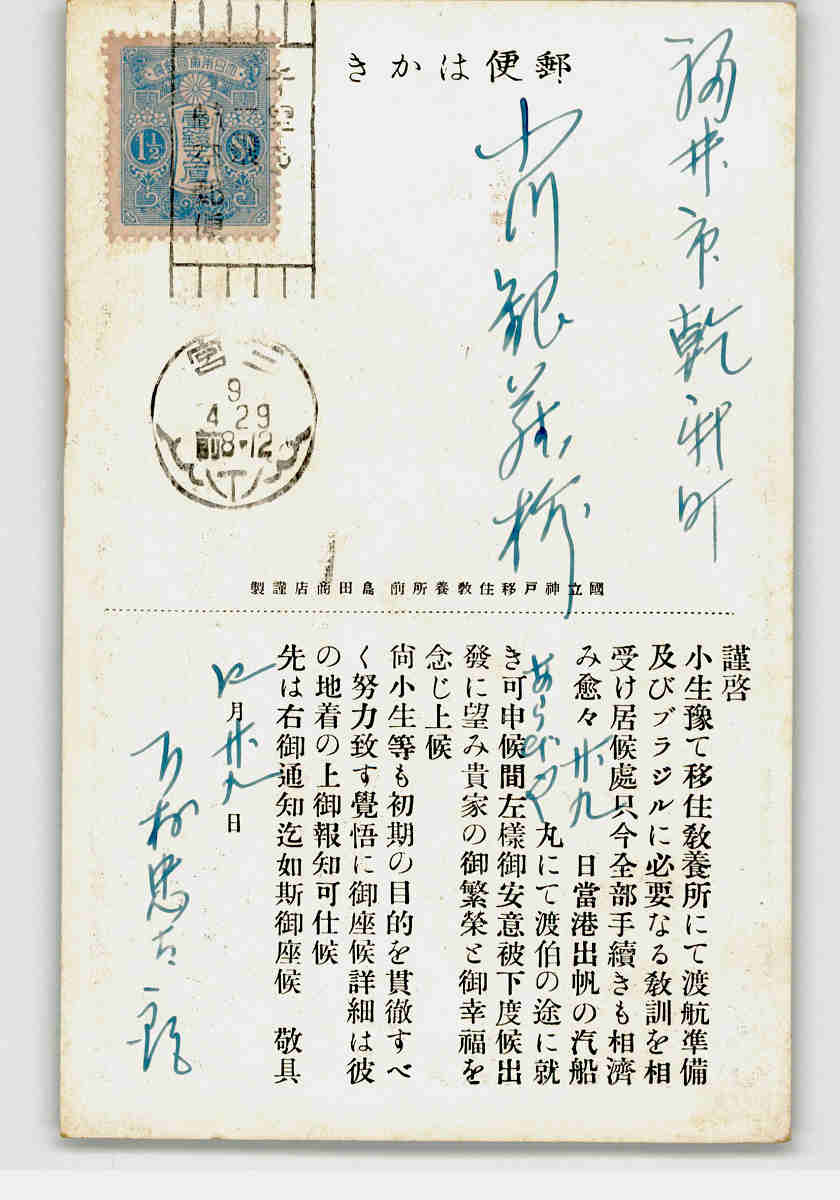 郵便はかき
1½ SN
三宮
9
4 29
前8-12
福井市乾新町
小川銀蔵様
國立神戸移住敎養所前 島田商店謹製
謹啓
小生豫て移住敎養所にて渡航準備
及びブラジルに必要なる敎訓を相
受け居候處只今全部手續きも相濟
み愈々 廿九 日當港出帆の汽船
あらびや 丸にて渡伯の途に就
き可申候間左樣御安意被下度候出
發に望み貴家の御繁榮と御幸福を
念じ上候
尙小生等も初期の目的を貫徹すべ
く努力致す覺悟に御座候詳細は彼
の地着の上御報知可仕候
先は右御通知迄如斯御座候 敬具
月廿九日
村忠太郎